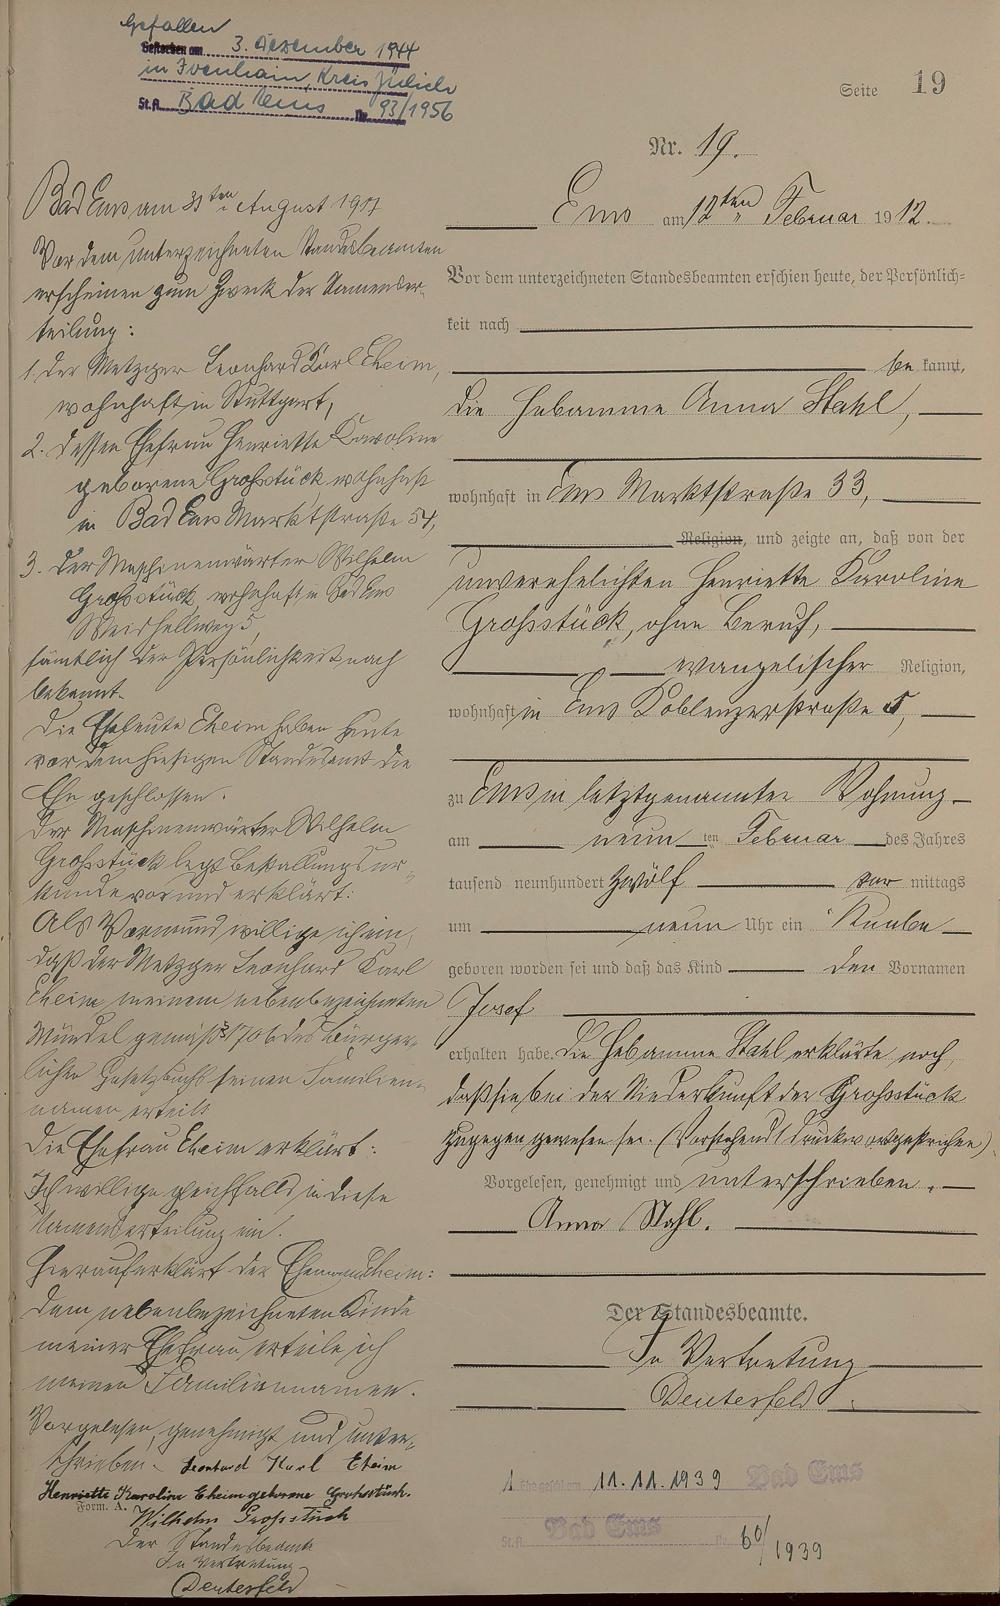 Gefallen
Gestorben am 3. Dezember 1944
in Ivenhain, Kreis Jülich
St.A. Bad Ems Nr. 93/1956
Seite 19
Nr. 19.
Ems am 12ten Februar 1912.
Vor dem unterzeichneten Standesbeamten erschien heute, der Persönlich-
keit nach
be kannt,
die Hebamme Anna Stahl,
wohnhaft in Ems Marktstraße 33,
Religion, und zeigte an, daß von der
unverehelichten Henriette Karoline
Großstück, ohne Beruf,
evangelischer Religion,
wohnhaft in Ems Koblenzerstraße 5,
zu Ems in letztgenannter Wohnung
am neunten Februar des Jahres
tausend neunhundert zwölf vor mittags
um neun Uhr ein Knabe
geboren worden sei und daß das Kind den Vornamen
Josef
erhalten habe. Die Hebamme Stahl erklärte noch,
daß sie bei der Niederkunft der Großstück
zugegen gewesen sei. (Vorstehend 1 Druckwort gestrichen).
Vorgelesen, genehmigt und unterschrieben.
Anna Stahl.
Der Standesbeamte.
In Vertretung
Deuterfeld.
1. Ehe geschl. am 11.11.1939 Bad Ems
St.A. Bad Ems Nr. 60/1939
Bad Ems am 31ten August 1917
Vor dem unterzeichneten Standesbeamten
erscheinen zum Zweck der Namenser-
teilung:
1. der Metzger Leonhard Karl Eheim,
wohnhaft in Stuttgart,
2. dessen Ehefrau Henriette Karoline
geborene Großstück wohnhaft
in Bad Ems Marktstraße 54,
3. der Maschinenwärter Wilhelm
Großstück, wohnhaft in Bad Ems
5,
sämtlich der Persönlichkeit nach
bekannt.
Die Eheleute Eheim haben heute
vor dem hiesigen Standesamt die
Ehe geschlossen.
Der Maschinenwärter Wilhelm
Großstück legt Bestallungsur-
kunde vor und erklärt:
Als Vormund willige ich ein,
daß der Metzger Leonhard Karl
Eheim meinem nebenbezeichneten
Mündel gemäß § 1706 des Bürger-
lichen Gesetzbuchs seinen Familien-
namen erteilt
Die Ehefrau Eheim erklärt:
Ich willige gleichfalls in diese
Namenserteilung ein.
Hierauf erklärt der Ehemann Eheim:
Dem nebenbezeichneten Kinde
meiner Ehefrau erteile ich
meinen Familiennamen.
Vorgelesen, genehmigt und unter-
schrieben. Leonhard Karl Eheim
Henriette Karoline Eheim geborene Grohsstück.
Form. A.
Wilhelm Grossstück
Der Standesbeamte
In Vertretung
Deuterfeld